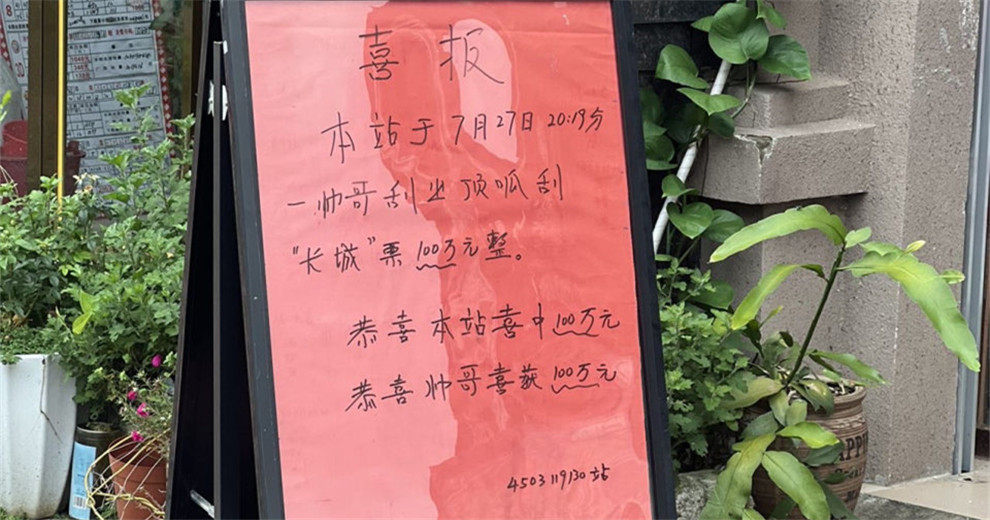 喜报
本站于7月27日20:19分
一帅哥刮出顶呱刮
"长城"票100万元整。
恭喜本站喜中100万元
恭喜帅哥喜获100万元
4503119130站